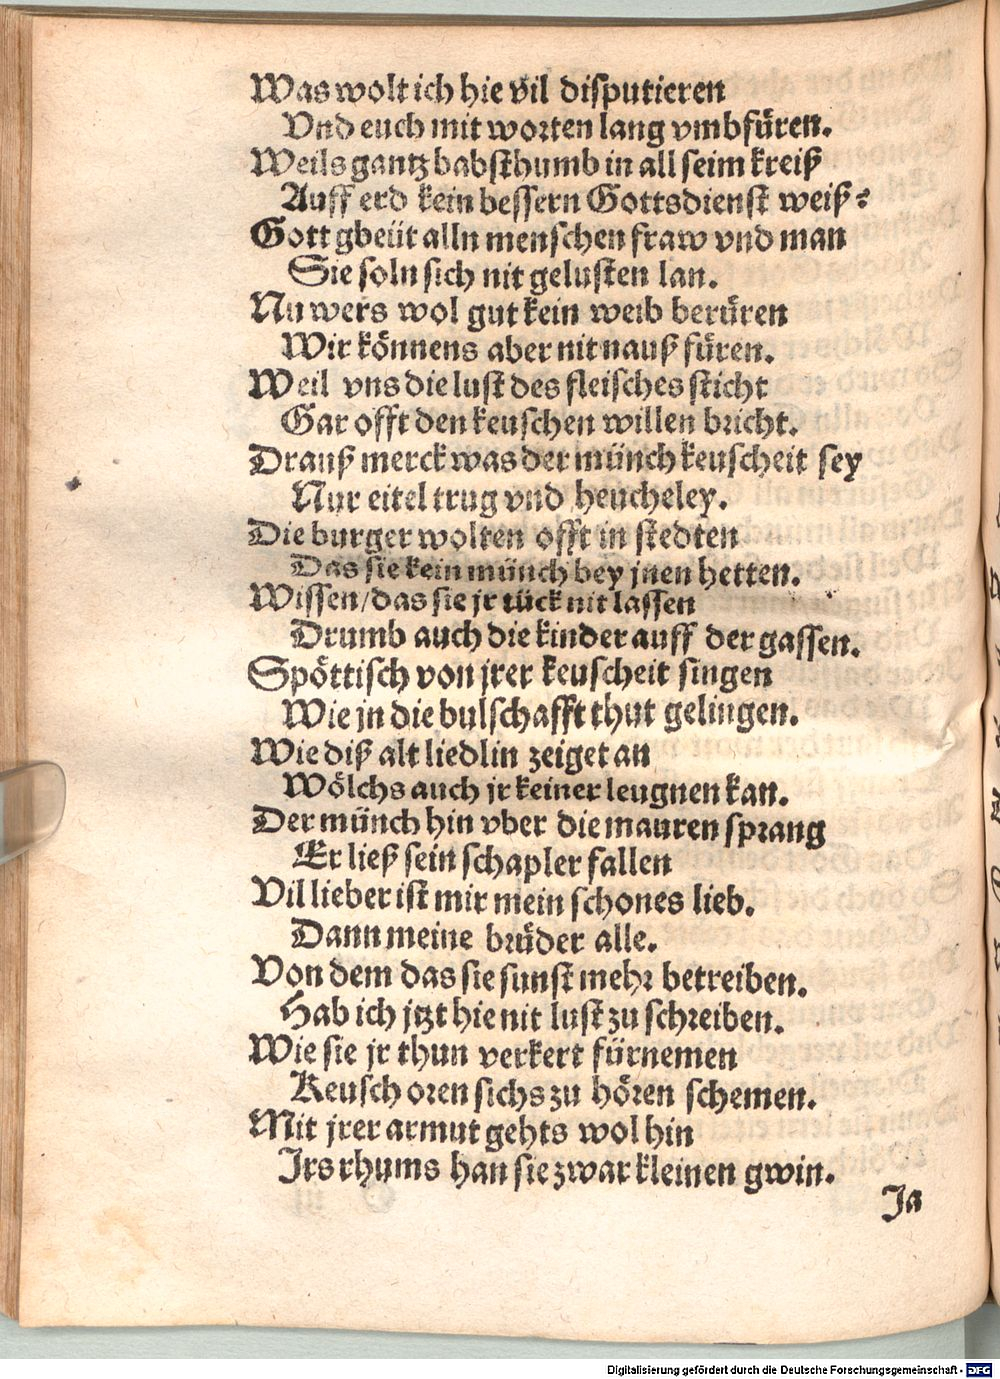 Was wolt ich hie vil disputieren
Vnd euch mit worten lang vmbfüren.
Weils gantz babsthumb in all seim kreiß
Auff erd kein bessern Gottsdienst weiß?
Gott gbeüt alln menschen fraw vnd man
Sie soln sich nit gelusten lan.
Nu wers wol gut kein weib berüren
Wir können's aber nit nauß füren.
Weil vns die lust des fleisches sticht
Gar offt den keuschen willen bricht.
Drauß merck was der münch keuscheit sey
Nur eitel trug vnd heucheley.
Die burger wolten offt in stedten
Das sie kein münch bey jnen hetten.
Wissen/das sie jr tück nit lassen
Drumb auch die kinder auff der gassen.
Spöttisch von jrer keuscheit singen
Wie jn die bulschafft thut gelingen.
Wie diß alt liedlin zeiget an
Wölchs auch jr keiner leugnen kan.
Der münch hin vber die mauren sprang
Er ließ sein schapler fallen
Vil lieber ist mir mein schones lieb.
Dann meine brüder alle.
Von dem das sie sunst mehr betreiben.
Hab ich jtzt hie nit lust zu schreiben.
Wie sie jr thun verkert fürnemen
Keusch oren sichs zu hören schemen.
Mit jrer armut gehts wol hin
Irs rhums han sie zwar kleinen gwin.
Ja
Digitalisierung gefördert durch die Deutsche Forschungsgemeinschaft - DFG